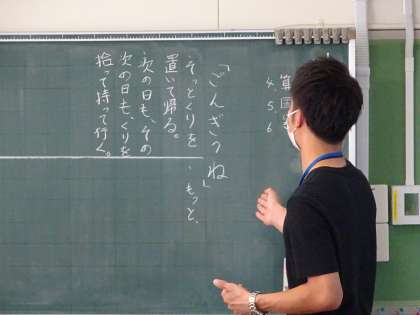 4. 算
5. 国
6.
「ごんぎつね」
・そっとくりを
置いて帰る。
・次の日も、その
次の日も、くりを
拾って持って行く。
・もっと、